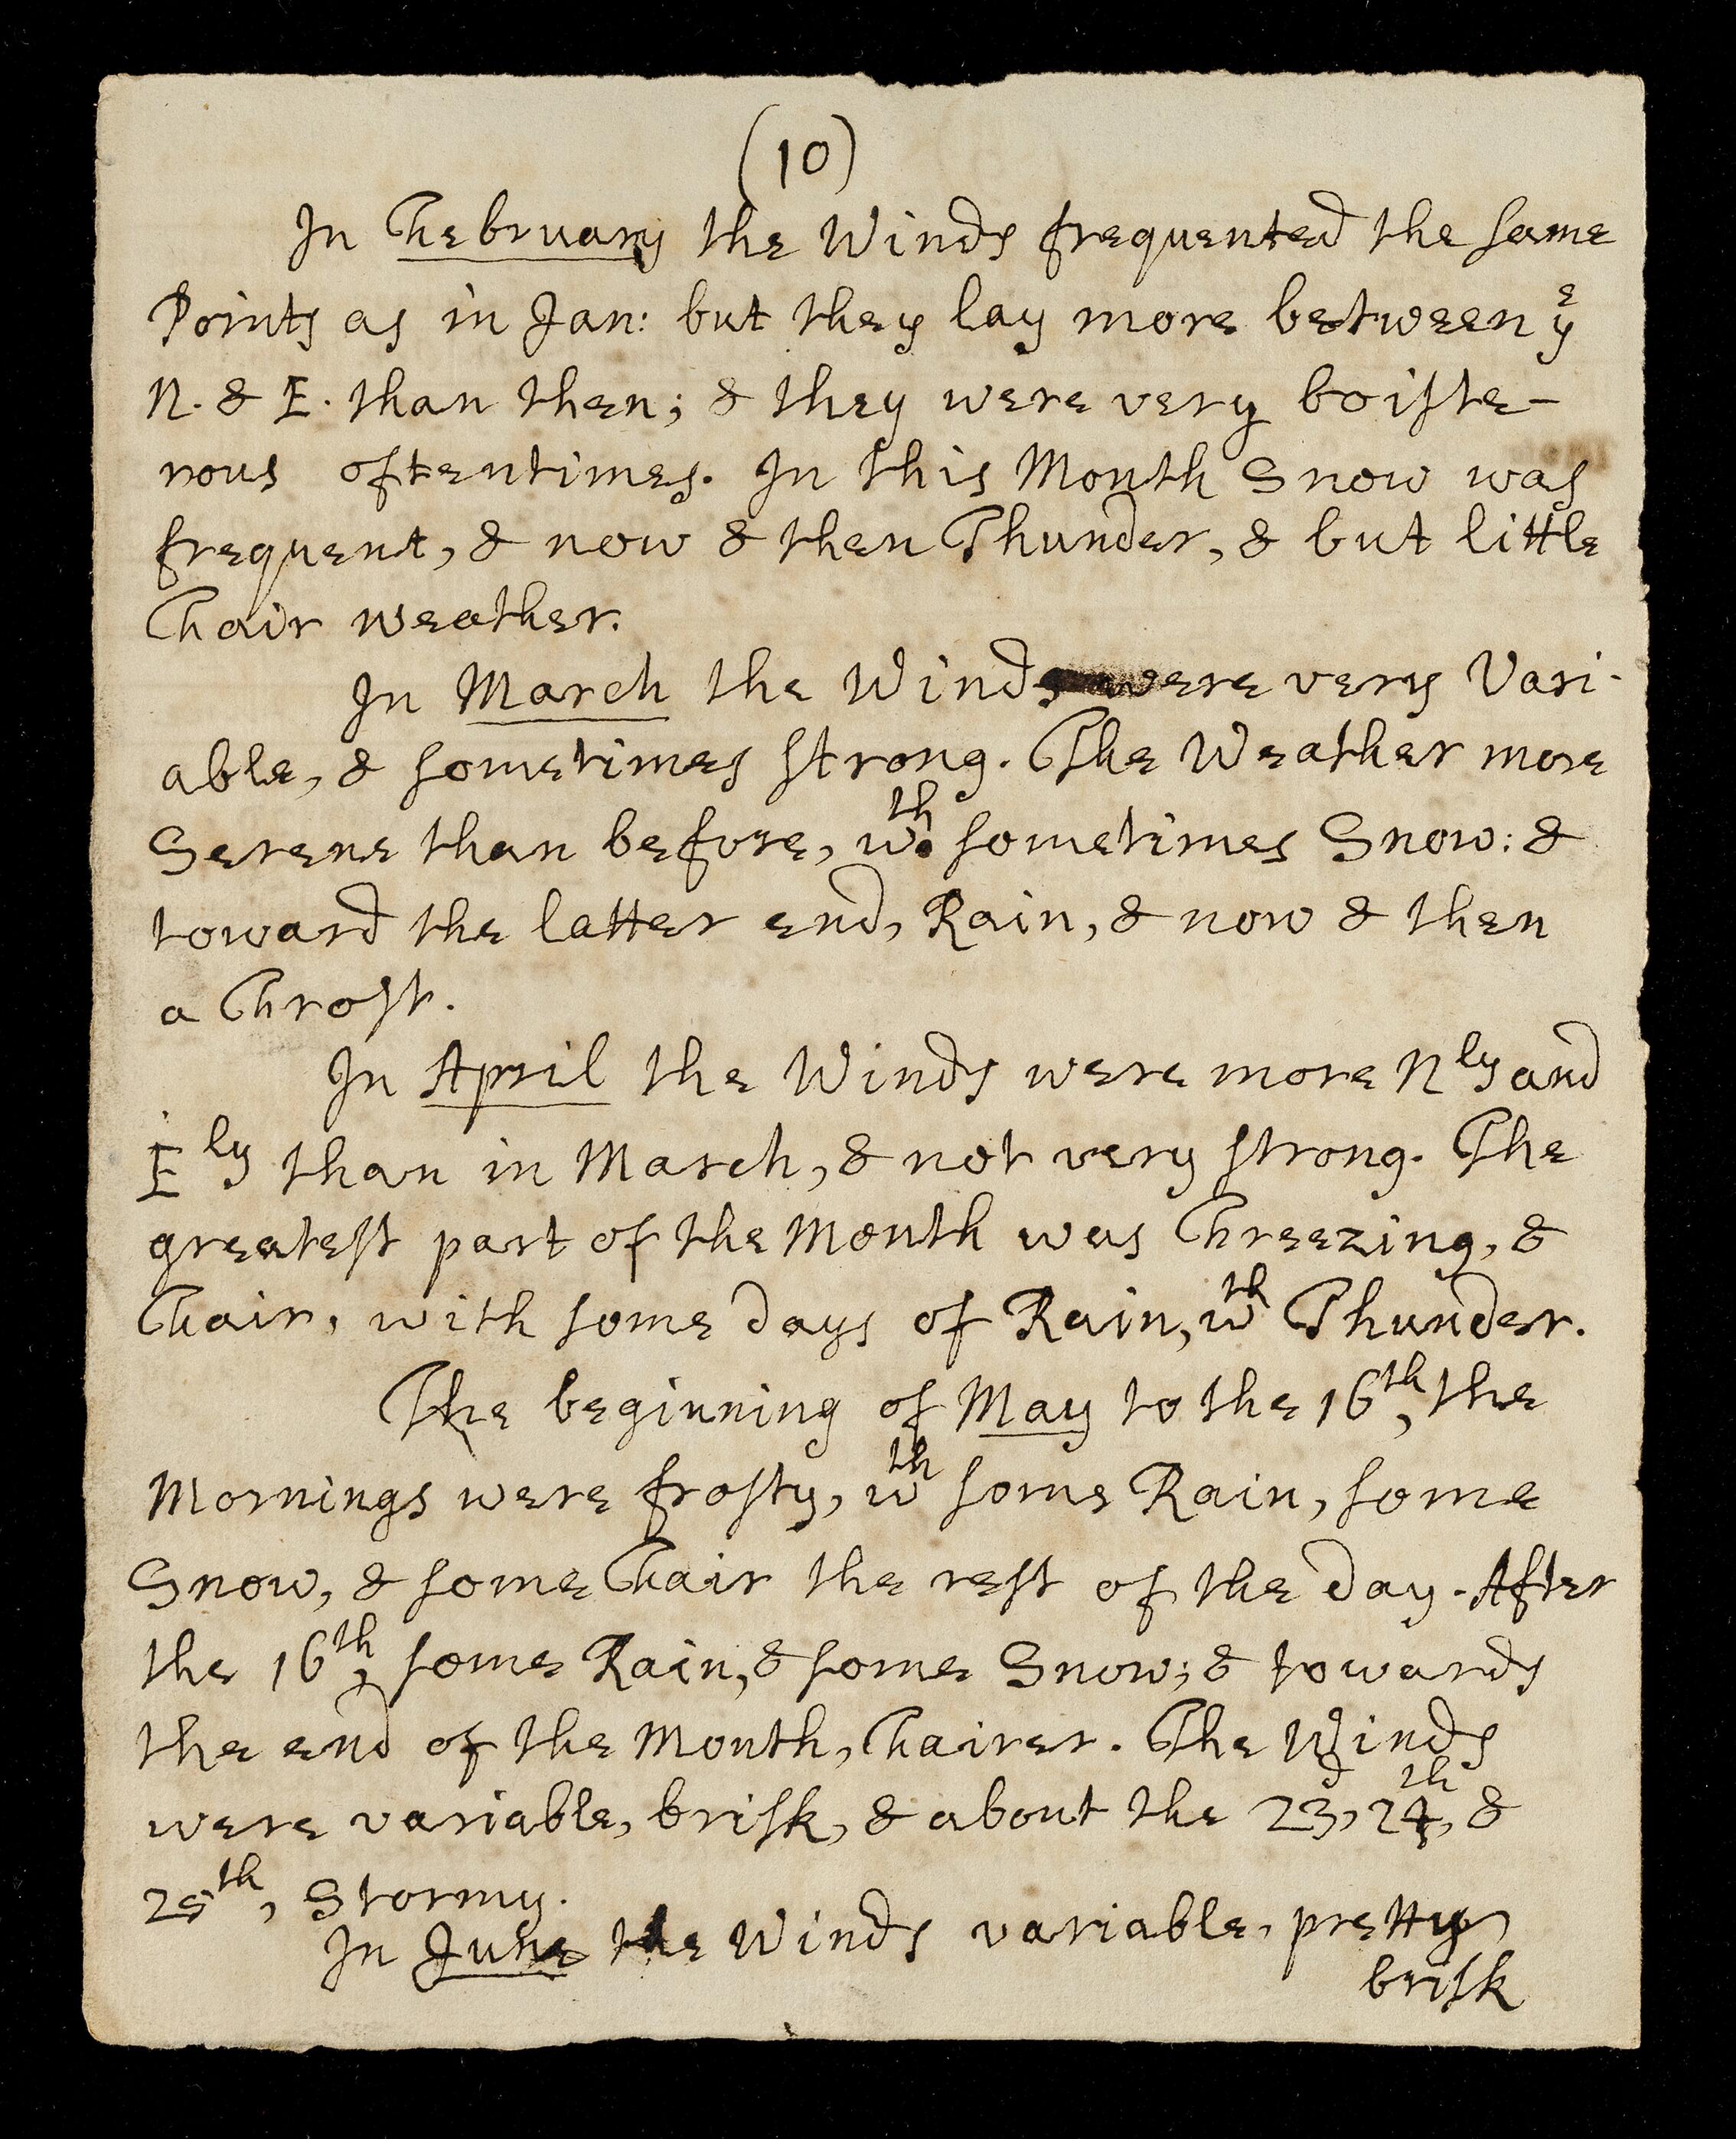 (10)
In February the Winds frequented the ſame
Points as in Jan: but they lay more between yᵉ
N. & E. than then; & they were very boiſte-
rous oftentimes. In this Month Snow was
frequent, & now & then Thunder, & but little
Fair weather.
In March the Winds were very Vari-
able, & ſometimes ſtrong. The Weather more
Serene than before, wᵗʰ. ſometimes Snow: &
toward the latter end, Rain, & now & then
a Froſt.
In April the Winds were more Nˡʸ and
Eˡʸ than in March, & not very ſtrong. The
greateſt part of the Month was Freezing, &
Fair, with ſome days of Rain, wᵗʰ Thunder.
The beginning of May to the 16ᵗʰ, the
Mornings were froſty, wᵗʰ ſome Rain, ſome
Snow, & ſome Fair the reſt of the day. After
the 16ᵗʰ, ſome Rain, & ſome Snow; & towards
the end of the Month, Fairer. The Winds
were variable, briſk, & about the 23ᵈ, 24ᵗʰ, &
25ᵗʰ, Stormy.
In June the Winds variable, pretty
briſk